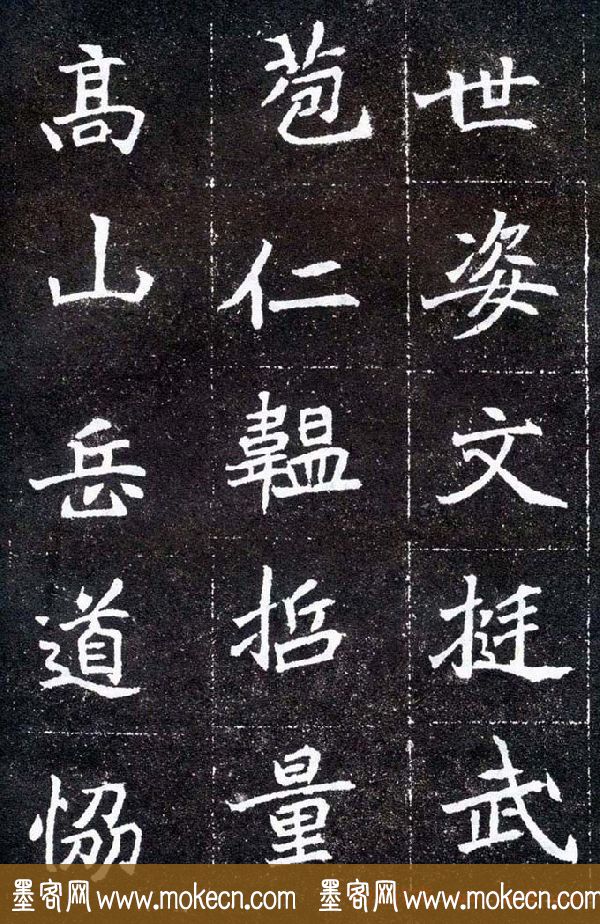 世姿文挺武
苞仁韞哲量
髙山岳道恊
墨客网 www.mokecn.com 墨客网 www.mokecn.com